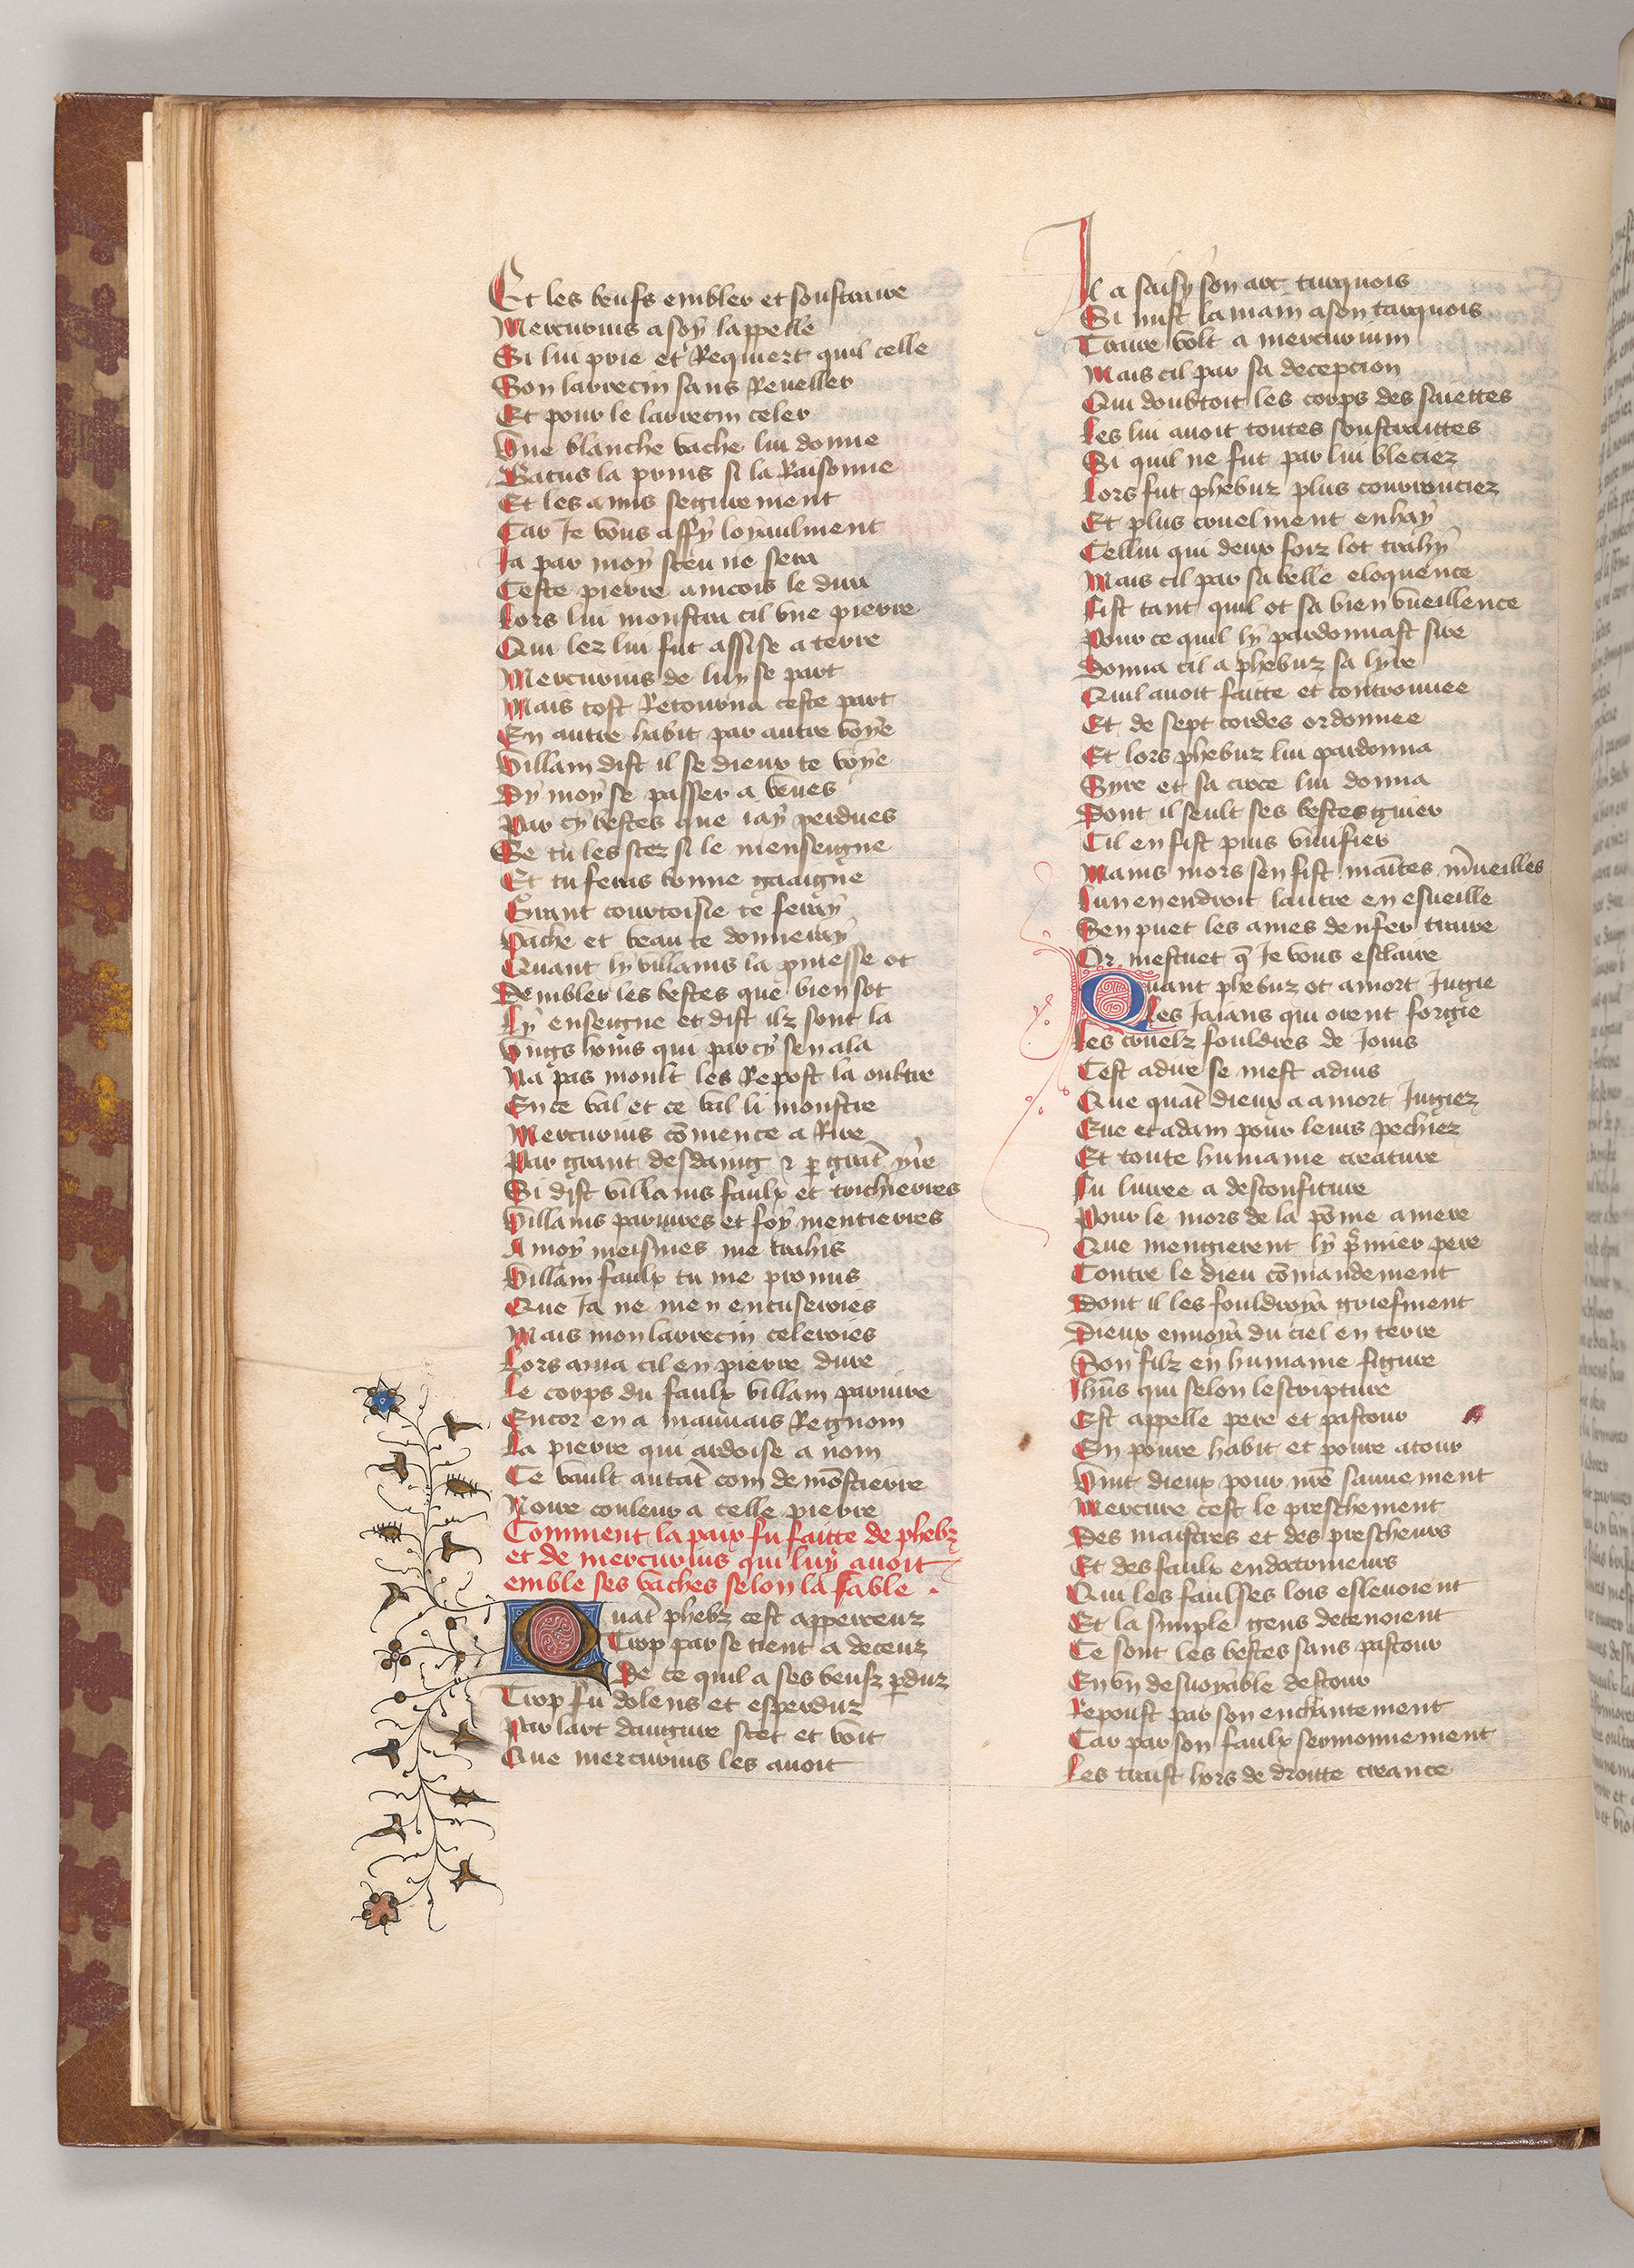 Et les beufs embler et soustraire
Mercurius a soy lappelle
Si lui prie et Requiert quil celle
Son larrecin sans Reueller
Et pour le larrecin celer
Vne blanche vache lui donne
Batus la prins si la Raisonne
Et les amis segurement
Car Je vous affy loyaulment
Ja par moy sceu ne sera
Ceste pierre aincois le dira
Lors lui monstra cil vne pierre
Qui lez lui fut assise a terre
Mercurius de luy se part
Mais tost Retourna ceste part
En autre habit par autre voye
Villain dist il se dieux te voye
Dy moy se passer a veues
Par cy bestes que iay perdues
Se tu les scez si le menseigne
Et tu feras bonne gaaigne
Grant courtoisie te feray
Vache et veau te donneray
Quant ly villains la pmesse ot
Dembler les bestes que bien sot
Ly enseigne et dist ilz sont la
Vngs homs qui par cy sen ala
Na pas moult les Repost la oultre
En ce val et ce val li monstre
Mercurius comence a Rire
Par grant desdaing z p grat yre
Si dist villains faulx et trichierres
Villains pariures et foy mentierres
A moy meismes me trahis
Villain faulx tu me promis
Que Ja ne men encuseroies
Mais mon larrecin celeroies
Lors mua cil en pierre dure
Le corps du faulx villain pariure
Encor en a mauuais Regnom
La pierre qui ardoise a nom
Ce vault autat com demostrerre
Noire couleur a celle pierre
Comment la paix fu faitte de phebz
et de mercurius qui luy auoit
emble ses vaches selon la fable .
Quat phebz cest apperceuz
Trop par se tient a deceuz
De ce quil a ses beufz pduz
Trop fu dolens et esperduz
Par lart daugure scet et voit
Que mercurius les auoit
Il a saisy son arc turquois
Si mist la main a son tarquois
Traire volt a mercurium
Mais cil par sa decepcion
Qui doubtoit les corps des saiettes
Les lui auoit toutes soustraittes
Si quil ne fut par lui bleciez
Lors fut phebuz plus courrouciez
Et plus cruelment enhay
Cellui qui deux foiz lot trahy
Mais cil par sa belle eloquence
Fist tant quil ot sa bien vueillence
Pour ce quil ly pardonnast sire
Donna cil a phebuz sa lyre
Quil auoit faitte et controuuee
Et de sept cordes ordonnee
Et lors phebuz lui pardonna
Syre et sa circe lui donna
Dont il seult ses bestes guier
Cil en fist puis viuifier
Mains mors sen fist maites mueilles
Lun en endroit lautre en esueille
Sen puet les ames denfer traire
Or mestuet q Je vous esclaire
Quant phebuz ot amort Jugie
Les Jaians qui oient forgie
Les cruelz fouldres de Jouis
Cest adire se mest aduis
Que quat dieux a amort Jugiez
Eue et adam pour leurs pechiez
Et toute humaine creature
Fu liuree a desconfiture
Pour le mors de la pome amere
Que mengierent ly pmier pere
Contre le dieu comandement
Dont il les fouldroya griefment
Dieux enuoya du ciel en terre
Son filz en humaine figure
Ihus qui selon lescripture
Est appelle pere et pastour
En poure habit et poure atour
Vint dieux pour nre sauuement
Mercure cest le preschement
Des maistres et des prescheurs
Et des faulx endoctrineurs
Qui les faulses lois esleuoient
Et la simple gens deceuoient
Ce sont les bestes sans pastour
En vn desuoyable destour
Repoust par son enchantement
Car par son faulx sermonnement
Les traist hors de droitte creance